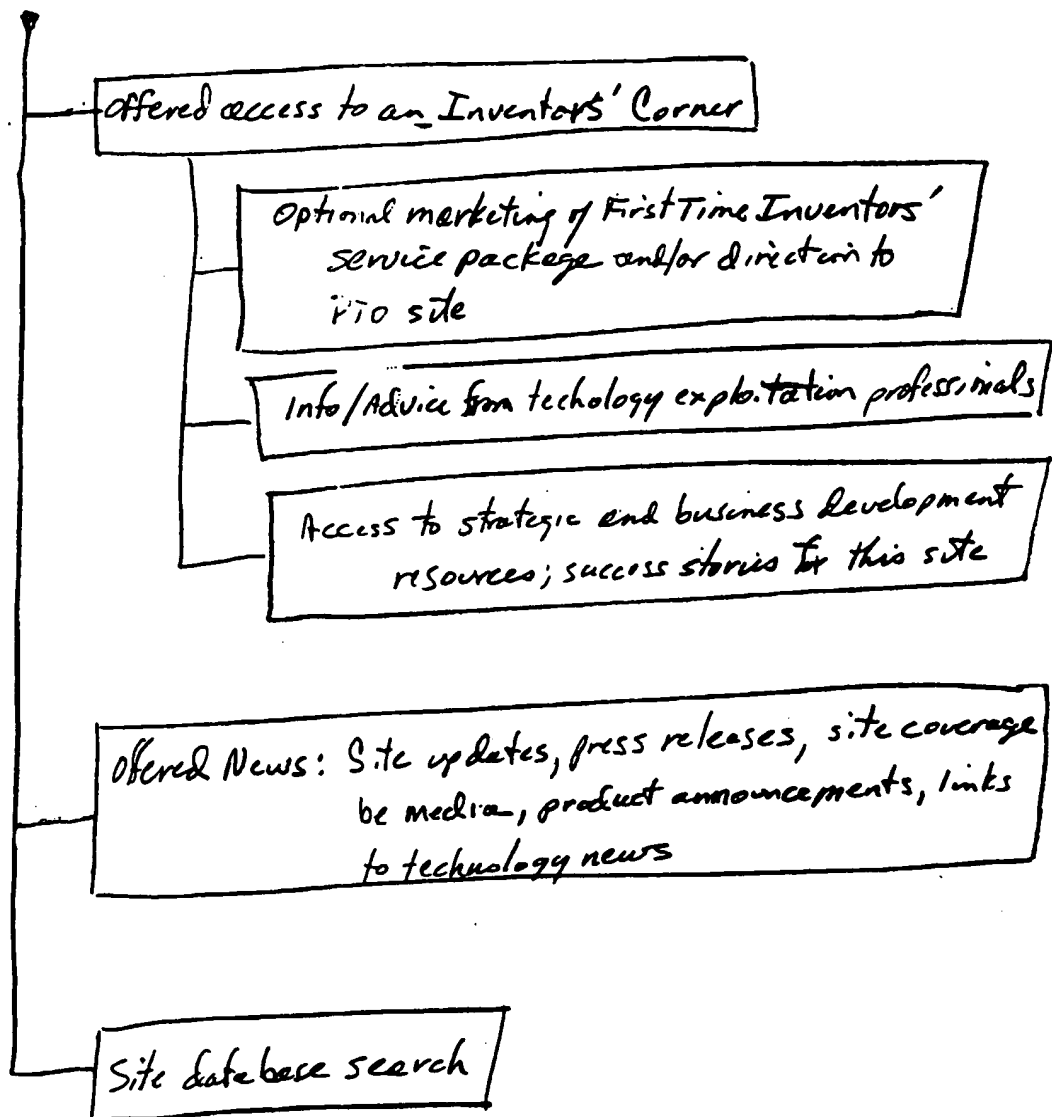 offered access to an Inventors' Corner
Optional marketing of First Time Inventors'
service package and/or direction to
PTO site
Info/Advice from techology exploitation professionals
Access to strategic and business development
resources; success stories for this site
Offered News: Site updates, press releases, site coverage
be media, product announcements, links
to technology news
Site database search